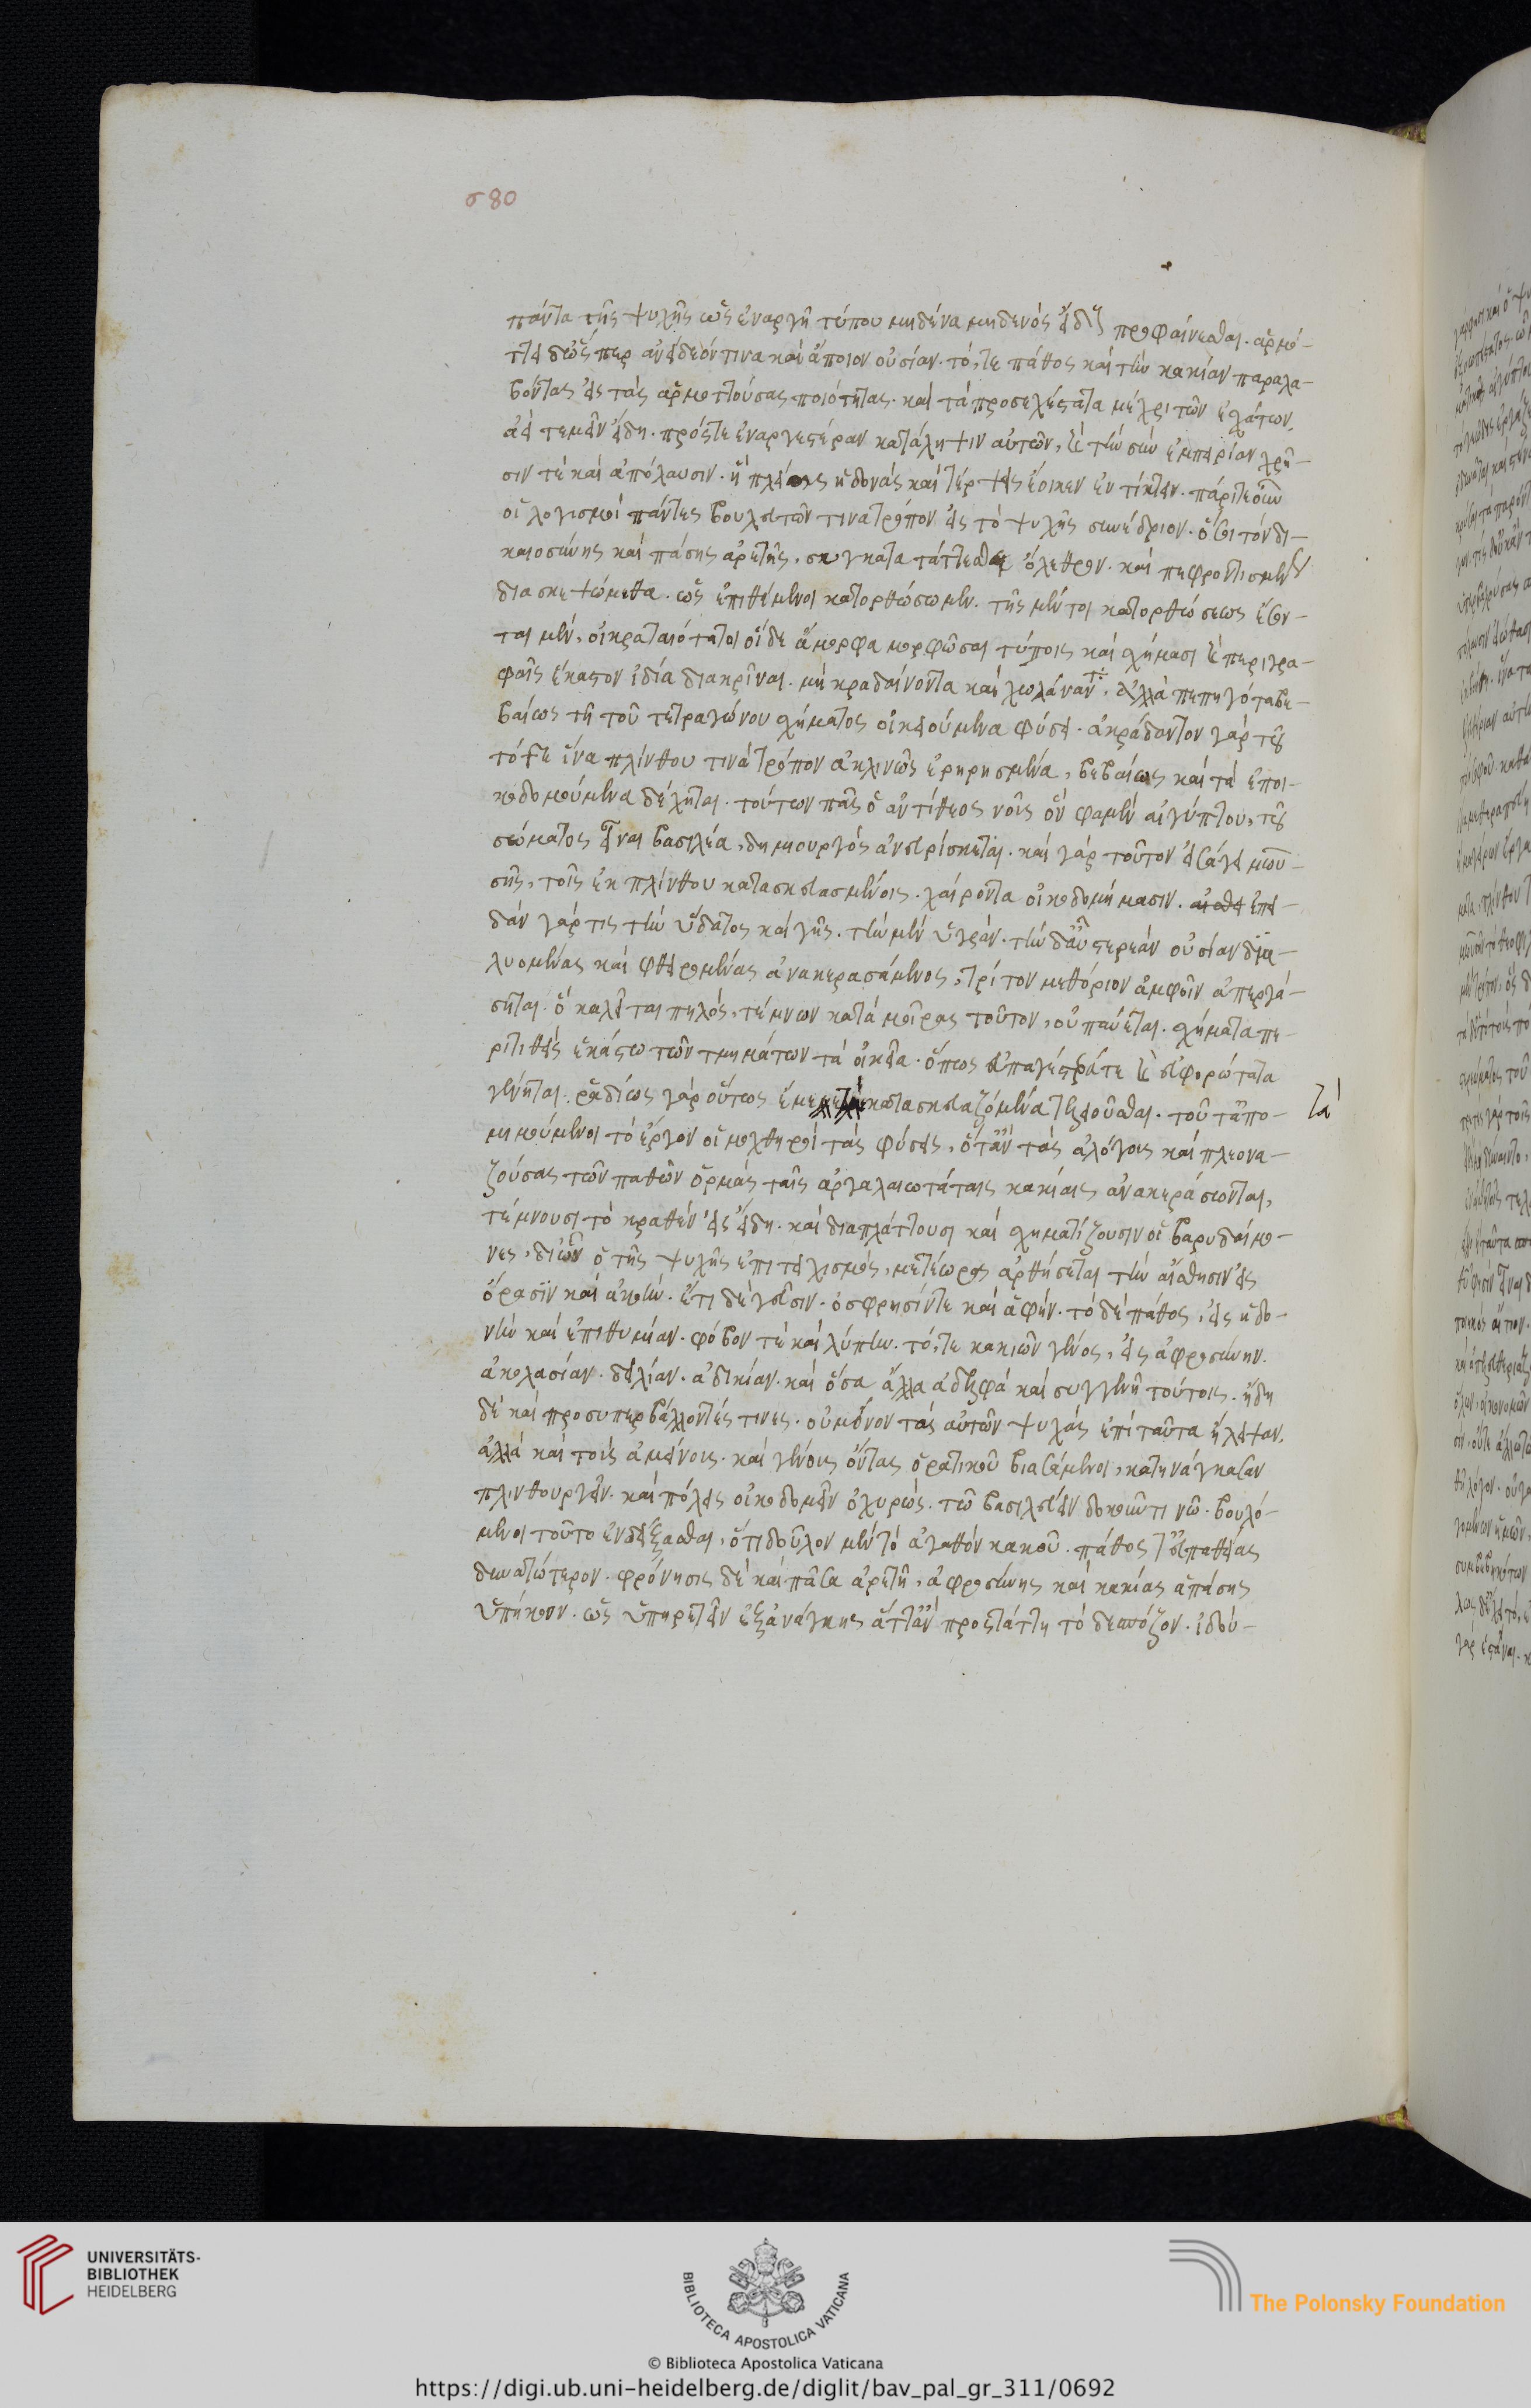 σ80
πάντα τῆς ψυχῆς ὡς ἐναργῆ τύπου μηδένα μηδενὸς εἴδους προφαίνεσθαι. ἁρμό-
ττει δ' ὥσπερ ἀνείδεόν τινα καὶ ἄποιον οὐσίαν. τό, τε πάθος καὶ τὴν κακίαν παραλα-
βόντας εἰς τὰς ἁρμοττούσας ποιότητας. καὶ τὰ προσεχέστατα μέχρι τῶν ἐσχάτων,
ἀεὶ τεμεῖν εἴδη. πρός τε ἐναργεστέραν κατάληψιν αὐτῶν, καὶ τὴν σὺν ἐμπειρίαν χρῆ-
σιν τὲ καὶ ἀπόλαυσιν. ἢ πλείους ἡδονὰς καὶ τέρψεις ἔοικεν ἐν τίκτειν. πάριτε οὖν
οἱ λογισμοὶ πάντες βουλευτῶν τινα τρόπον εἰς τὸ ψυχῆς συνέδριον. ὅσοι τὸν δι-
καιοσύνης καὶ πάσης ἀρετῆς, συγκατατάττεσθαι ὄλεθρον. καὶ πεφροντισμένως
διασκεψώμεθα. ὡς ἐπιθέμενοι κατορθώσωμεν. τῆς μέντοι κατορθώσεως ἔσον-
ται μὲν, οἱ κραταιότατοι οἵδε ἄμορφα μορφῶσαι τύποις καὶ σχήμασι καὶ περιγρα-
φαῖς ἕκαστον ἰδία διακρῖναι. μὴ κραδαίνοντα καὶ χωλαίναντ. ἀλλὰ πεπηγότα βε-
βαίως τῇ τοῦ τετραγώνου σχήματος οἰκειούμενα φύσει. ἀκράδαντον γὰρ τοῦ-
τό γε ἵνα πλίνθου τινὰ τρόπον ἀκλινῶς ἐρηρησμένα, βεβαίως καὶ τὰ ἐποι-
κοδομούμενα δέχηται. τούτων πᾶς ὁ ἀντίθεος νοῖς ὃν φαμὲν αἰγύπτου, τοῦ
σώματος εἶναι βασιλέα, δημιουργὸς ἀνευρίσκεται. καὶ γὰρ τοῦτον εἰσάγει μωυ-
σῆς, τοῖς ἐκ πλίνθου κατασκευασμένοις. χαίροντα οἰκοδομήμασιν. ἐπει-
δὰν γάρ τις τὴν ὕδατος καὶ γῆς. τὴν μὲν ὑγρὰν. τὴν δ' αὖ στερεὰν οὐσίαν δια-
λυομένας καὶ φθειρομένας ἀνακερασάμενος, τρίτον μεθόριον ἀμφοῖν ἀπεργά-
σηται. ὃ καλεῖται πηλός, τέμνων κατὰ μοίρας τοῦτον, οὐ παύεται. σχήματα πε-
ριτιθεὶς ἑκάστω τῶν τμημάτων τὰ οἰκεῖα. ὅπως εὐπαγέστερά τε καὶ εὐφορώτατα
γένηται. ῥαδίως γὰρ οὕτως ἔμελλε κατασκευαζόμενα τελειοῦσθαι. τοῦτ' ἀπο- τὰ
μιμούμενοι τὸ ἔργον οἱ μοχθηροὶ τὰς φύσεις, ὅταν τὰς ἀλόγους καὶ πλεονα-
ζούσας τῶν παθῶν ὁρμὰς ταῖς ἀργαλαιωτάταις κακίαις ἀνακεράσωνται,
τέμνουσι τὸ κραθὲν εἰς εἴδη. καὶ διαπλάττουσι καὶ σχηματίζουσιν οἱ βαρυδαίμο-
νες, δι' ὧν ὁ τῆς ψυχῆς ἐπιτειχισμός, μετέωρος ἀρθήσεται τὴν αἴσθησιν εἰς
ὅρασϊν καὶ ἀκοὴν. ἔτι δὲ γεῦσιν. ὄσφρησίν τε καὶ ἁφήν. τὸ δὲ πάθος, εἰς ἡδο-
νὴν καὶ ἐπιθυμίαν. φόβον τὲ καὶ λύπην. τό, τε κακιῶν γένος, εἰς ἀφροσύνην.
ἀκολασίαν. δειλίαν. ἀδικίαν. καὶ ὅσα ἄλλα ἀδελφὰ καὶ συγγενῆ τούτοις. ἤδη
δὲ καὶ προσυπερβάλλοντές τινες. οὐ μόνον τὰς αὐτῶν ψυχὰς ἐπὶ ταῦτα ἤλειψαν.
ἀλλὰ καὶ τοὺς ἀμείνους. καὶ γένους ὄντας ὁρατικοῦ βιασάμενοι, κατηνάγκασαν
πλινθουργεῖν. καὶ πόλεις οἰκοδομεῖν ὀχυρὼς. τῶ βασιλεύειν δοκοῦντι νῶ. βουλό-
μενοι τοῦτο ἐνδείξασθαι, ὅτι δοῦλον μὲν τὸ ἀγαθὸν κακοῦ. πάθος τ' εὐπαθείας
δυνατώτερον. φρόνησις δὲ καὶ πᾶσα ἀρετὴ, ἀφροσύνης καὶ κακίας ἁπάσης
ὑπήκοον. ὡς ὑπηρετεῖν ἐξανάγκης ἅττ' ἂν προστάττη τὸ δεσπόζον. ἰδοὺ-
UNIVERSITÄTS-
BIBLIOTHEK
HEIDELBERG
BIBLIOTECA APOSTOLICA VATICANA
The Polonsky Foundation
© Biblioteca Apostolica Vaticana
https://digi.ub.uni-heidelberg.de/diglit/bav_pal_gr_311/0692